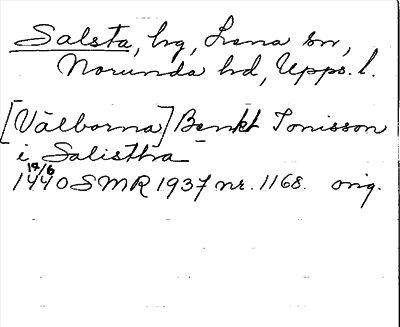 Salsta, hg, Lena sn,
Norunda hd, Upps. l.
[Välborna] Benkt Tonisson
i Salistha
14/6
1440 SMR 1937 nr. 1168. orig.